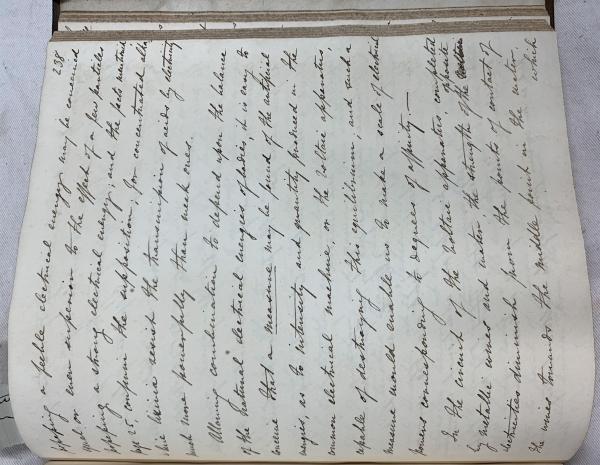 238
opposing a feeble electrical energy may be conceived
equal or even superior to the effect of a few particles
opposing a strong electrical energy, and the facts mentioned
page 25 confirm the supposition; for concentrated alka-
-line lixivia resist the transmission of acids by electricity
much more powerfully than weak ones.
Allowing combination to depend upon the balance
of the natural electrical energies of bodies, it is easy to
conceive that a measure may be found of the artificial
energies, as to intensity and quantity produced in the
common electrical machine, or the Voltaic apparatus,
capable of destroying this equilibrium, and such a
measure would enable us to make a scale of electrical
powers corresponding to degrees of affinity.—
In the circuit of the Voltaic apparatus, completed
by metallic wires and water, the strength of the opposite
electricities diminish from the points of contact of
the wires towards the middle point in the water, which